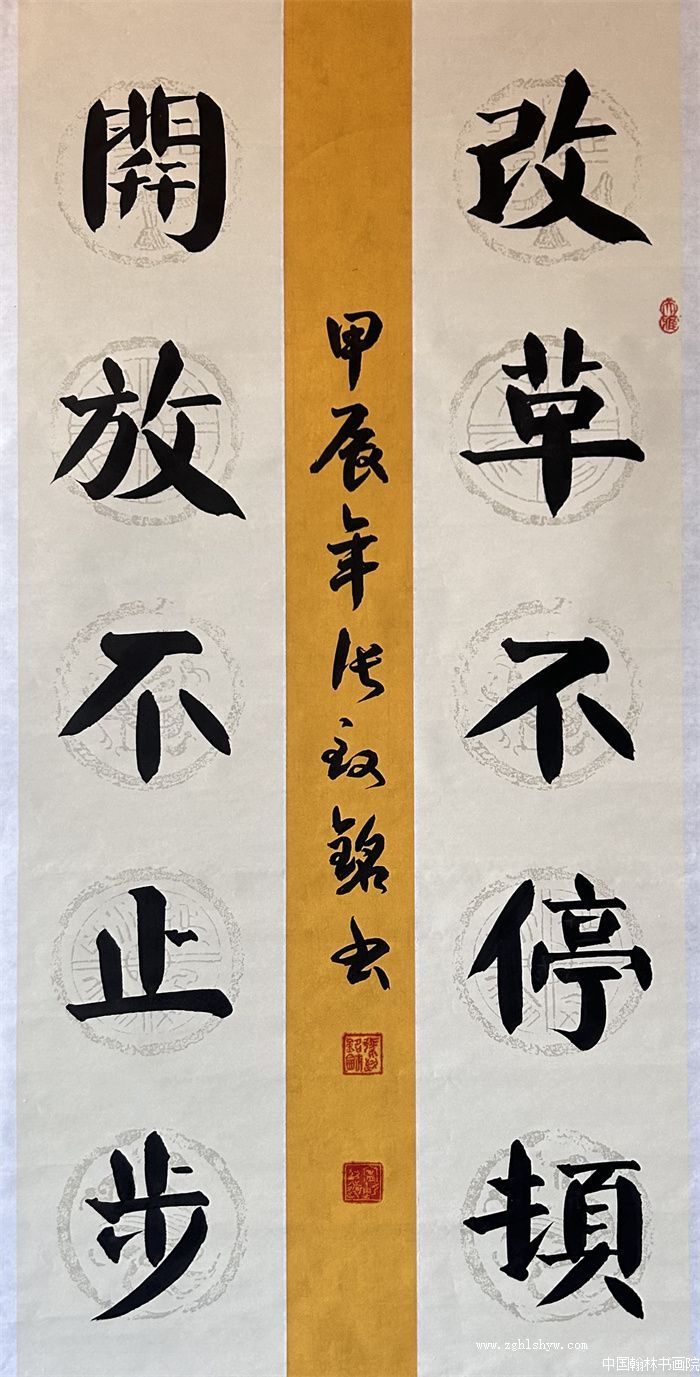 改草不停頓
開放不止步
甲辰年张致銘书
www.zghlshyw.com
中国翰林书画院